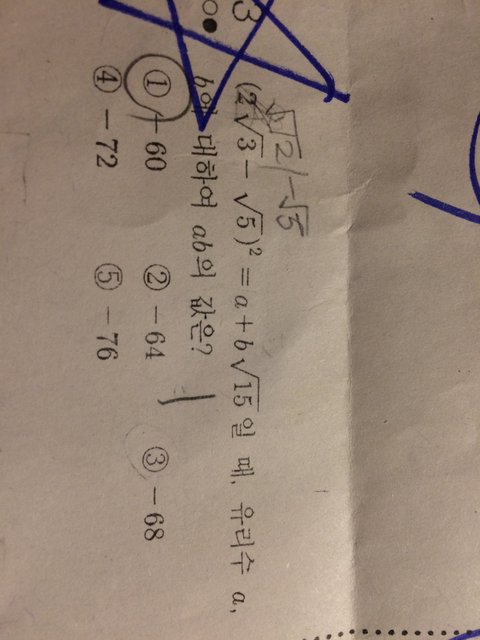 3
(2√3 − √5)² = a + b√15일 때, 유리수 a,
√12 − √5
b에 대하여 ab의 값은?
① −60 ② −64 ③ −68
④ −72 ⑤ −76